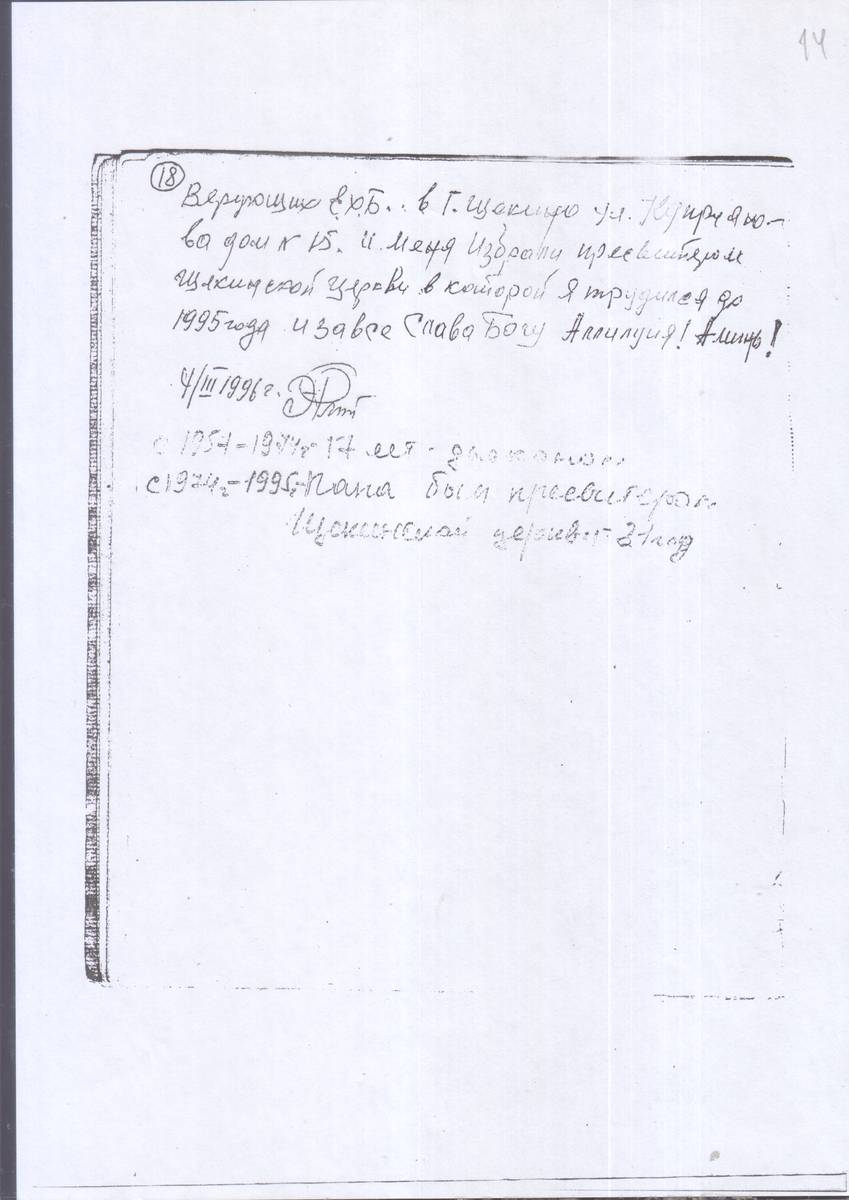 14
18
Верующих Е.Х.Б. в г. Щекино ул. Куприяно-
ва дом № 15. и меня Избрали пресвитером
Щекинской церкви в которой я трудился до
1995 года и за все Слава Богу Аллилуия! Аминь!
4/III 1996 г.
с 1957-1974г 17 лет - дьяконом
с 1974г.-1995г. Папа был пресвитером
Щекинской церкви - 21 год